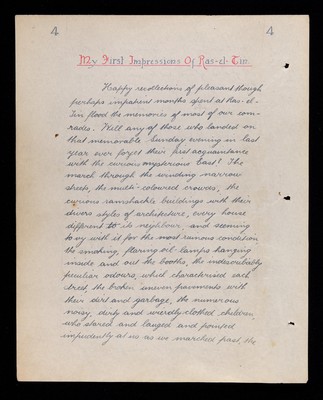 4 4
My First Impressions Of Ras-el-Tin.
Happy recollections of pleasant though
perhaps impatient months spent at Ras-el-
Tin flood the memories of most of our com-
rades. Will any of those who landed on
that memorable Sunday evening in last
year ever forget their first acquaintance
with the curious mysterious East! The
march through the winding narrow
streets, the multi-coloured crowds, the
curious ramshackle buildings with their
divers styles of architecture, every house
different to its neighbour, and seeming
to vy with it for the most ruinous condition
the smoking, flaring oil lamps hanging
inside and out the booths, the indescribably
peculiar odours, which characterised each
street, the broken uneven pavements with
their dirt and garbage, the numerous
noisy, dirty and wierdly clothed children,
who stared and laughed and pointed
impudently at us as we marched past, the